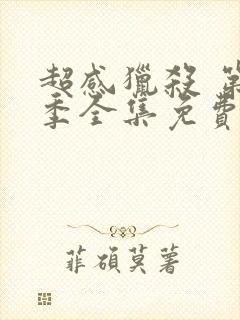 超感獵殺 第
季全集免費
菲碩莫著